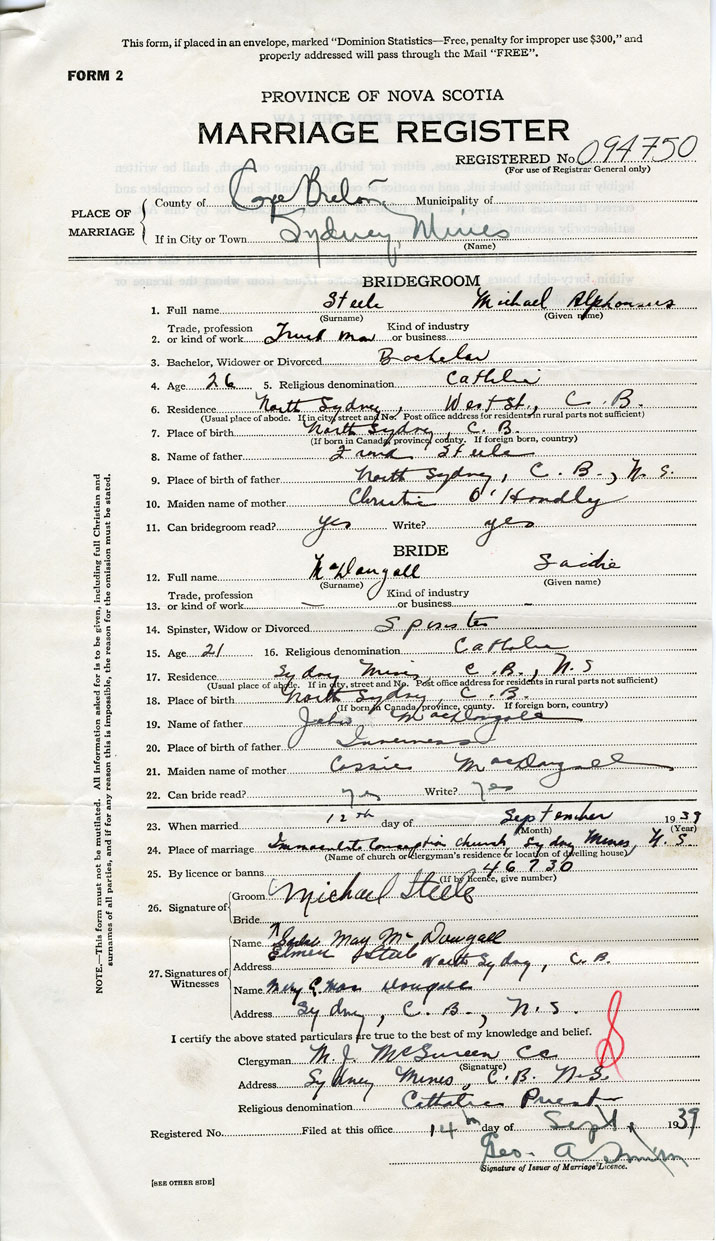 This form, if placed in an envelope, marked "Dominion Statistics—Free, penalty for improper use $300," and
properly addressed will pass through the Mail "FREE".
FORM 2
PROVINCE OF NOVA SCOTIA
MARRIAGE REGISTER
REGISTERED No. 094750
(For use of Registrar General only)
PLACE OF MARRIAGE
County of Cape Breton Municipality of
If in City or Town Sydney Mines
(Name)
BRIDEGROOM
1. Full name Steele Michael Alphonsus
(Surname) (Given name)
2. Trade, profession or kind of work Truck man Kind of industry or business
3. Bachelor, Widower or Divorced Bachelor
4. Age 26 5. Religious denomination Catholic
6. Residence North Sydney, West St., C. B.
(Usual place of abode. If in city, street and No. Post office address for residents in rural parts not sufficient)
7. Place of birth North Sydney, C. B.
(If born in Canada, province, county. If foreign born, country)
8. Name of father Steele
9. Place birth of father North Sydney, C. B., N. S.
10. Maiden name of mother Christie O'Handley
11. Can bridegroom read? yes Write? yes
BRIDE
12. Full name McDougall Saidie
(Surname) (Given name)
13. Trade, profession or kind of work — Kind of industry or business –
14. Spinster, Widow or Divorced Spinster
15. Age 21 16. Religious denomination Catholic
17. Residence Sydney Mines C. B., N. S
(Usual place of abode. If in city, street and No. Post office address for residents in rural parts not sufficient)
18. Place of birth North Sydney, C. B.
(If born in Canada, province, county. If foreign born, country)
19. Name of father John MacDougall
20. Place of birth of father Inverness
21. Maiden name of mother Cassie MacDougall
22. Can bride read? yes Write? yes
23. When married 12th day of September 1939
(Month) (Year)
24. Place of marriage Immaculate Conception church, Sydney Mines, N. S.
(Name of church or clergyman's residence or location of dwelling house)
25. By licence or banns 46730
(If by licence, give number)
26. Signature of Groom Michael Steele
Bride
Sadie May McDougall
27. Signatures of Witnesses
Name Steele
Address North Sydney, C. B.
Name Mary Mac Dougall
Address Sydney, C. B., N. S.
I certify the above stated particulars are true to the best of my knowledge and belief.
Clergyman M. J. Cc
(Signature)
Address Sydney Mines, C. B. N. S.
Religious denomination Catholic Priest
Registered No. Filed at this office 14th day of Sept. 1939
Geo. A
Signature of Issuer of Marriage Licence.
[SEE OTHER SIDE]
NOTE.—This form must not be mutilated. All information asked for is to be given, including full Christian and
surnames of all parties, and if for any reason this is impossible, the reason for the omission must be stated.